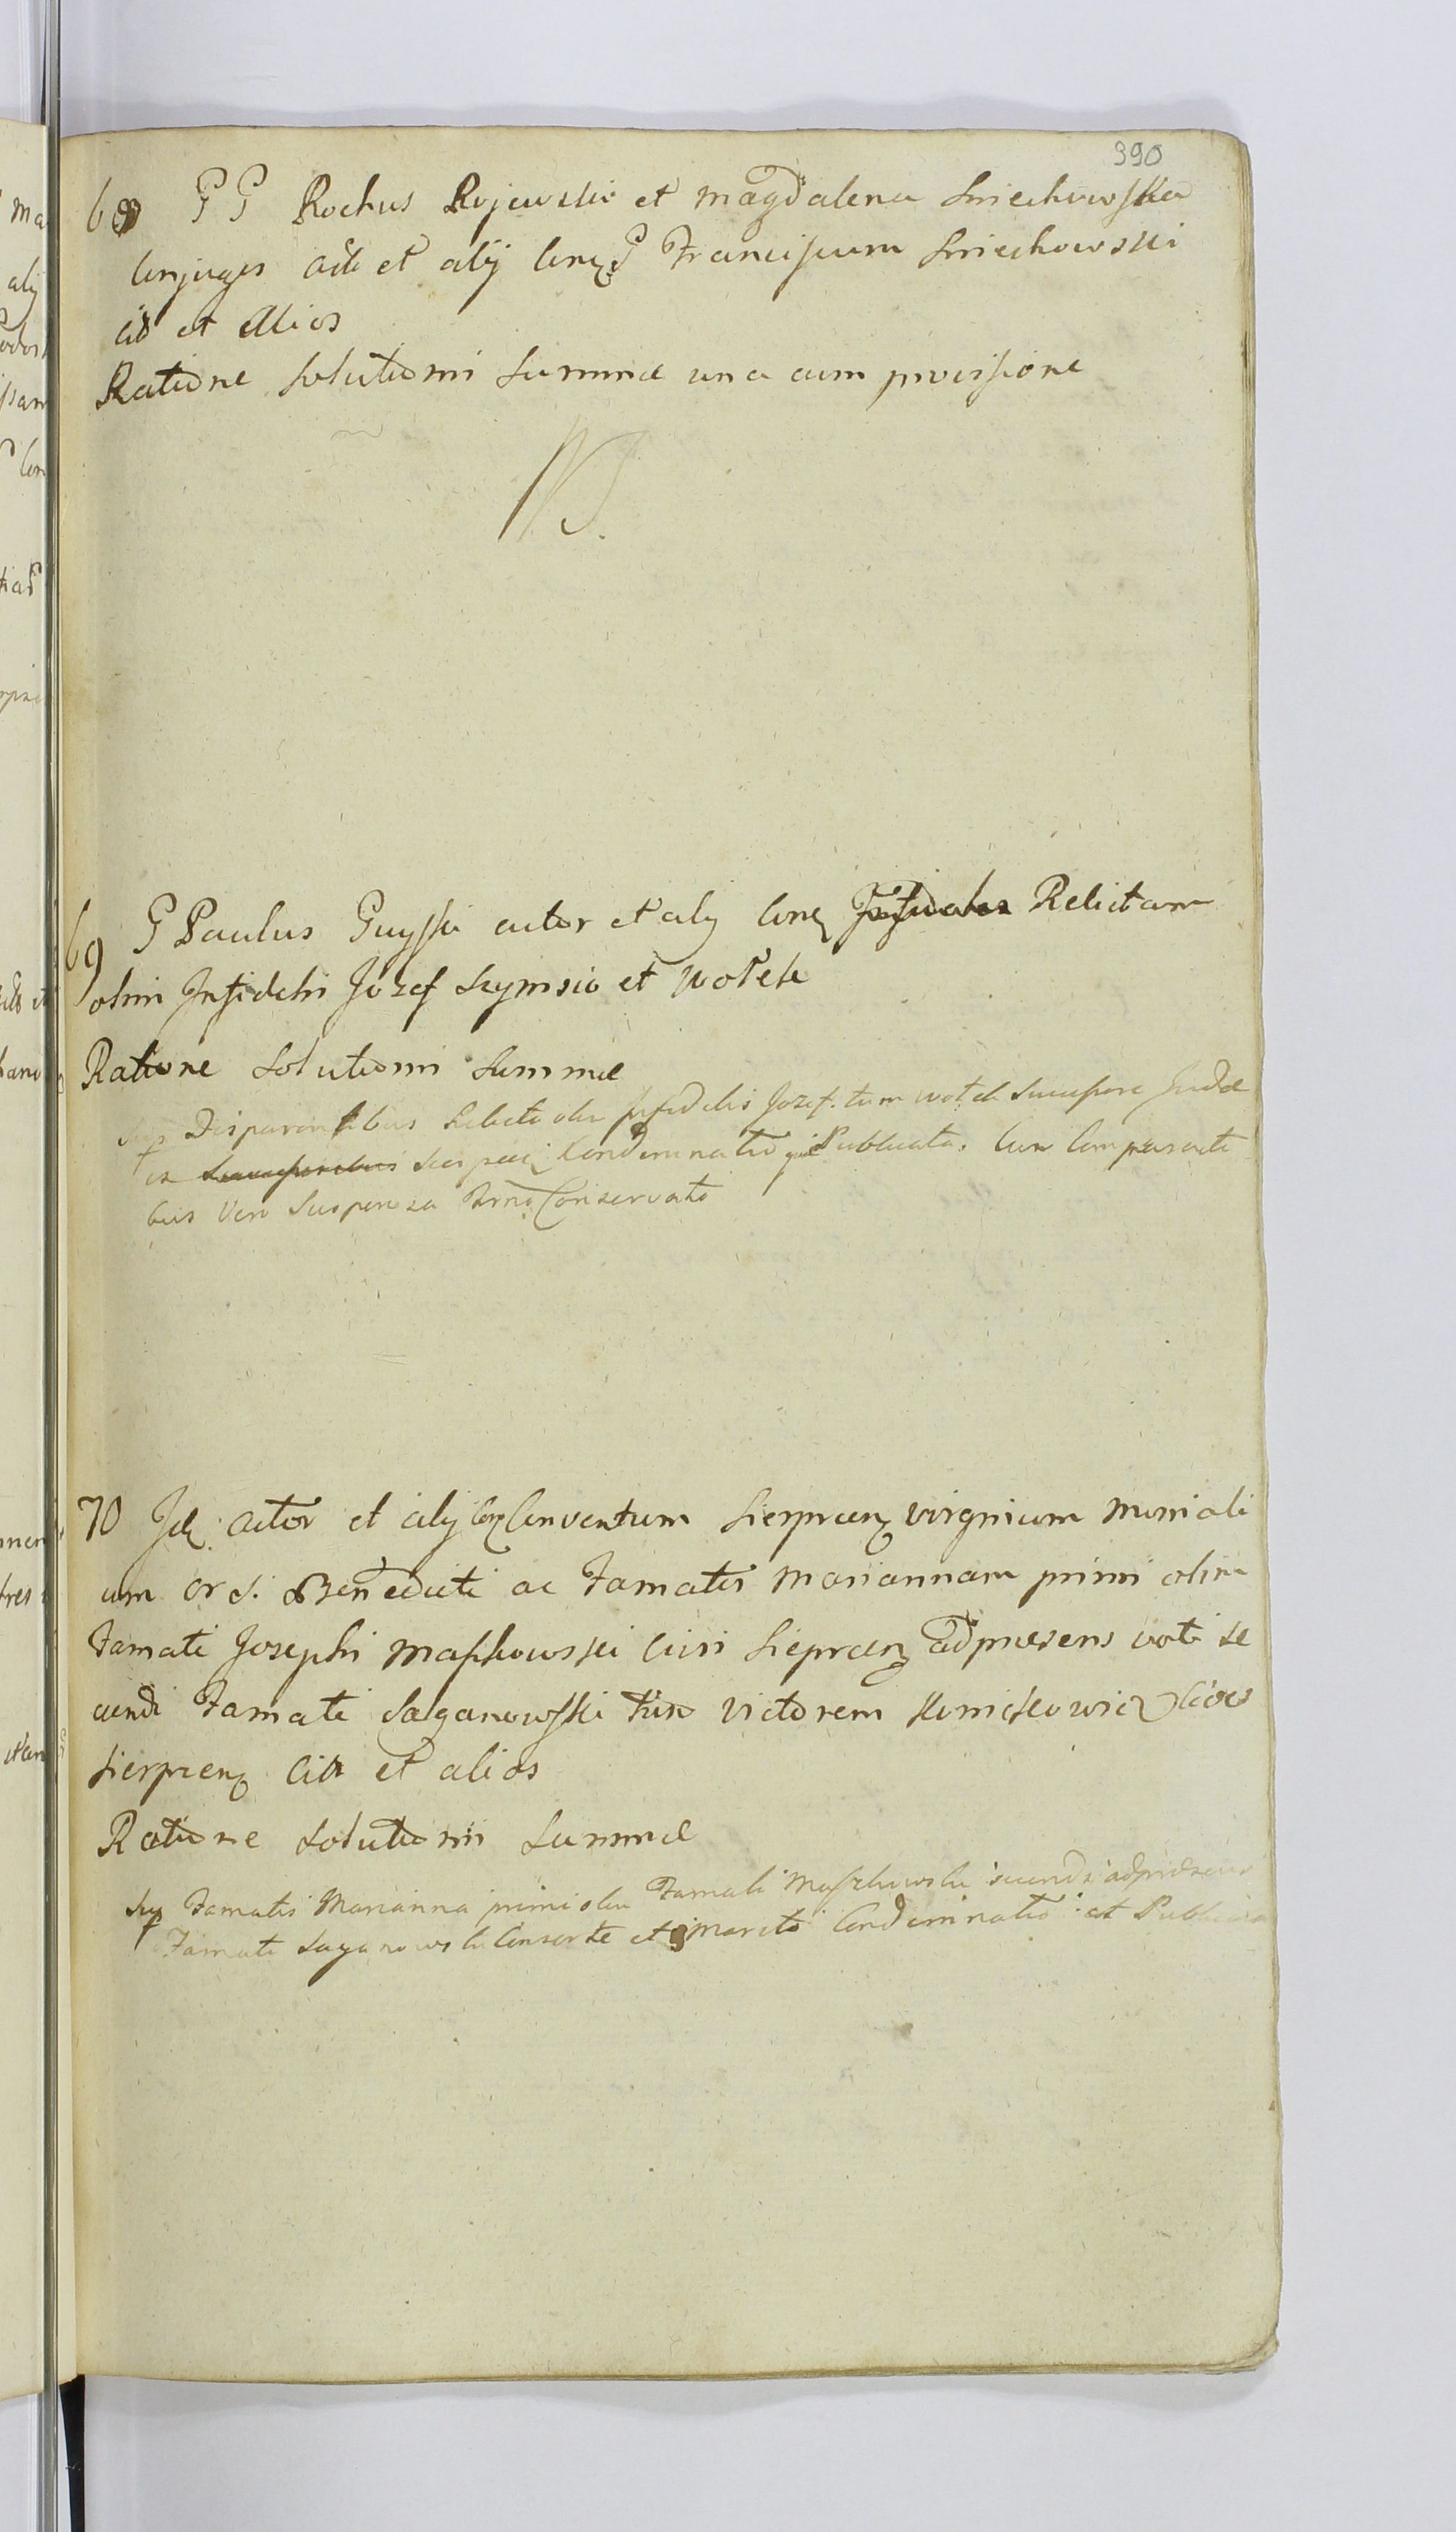 390
68 G G Rochus Rojewski et Magdalena Smiechowska
Conjuges act et alij Conq G Franciscum Smiechowski
cit et Alios
Ratione Solutionis Summæ una cum provisione
69 G Paulus Guyski actor et alij Conq Infideles Relictam
olim Infidelis Jozef Szymsio et Wolek
Ratione Solutionis Summæ
Disparentibus Relicta olim Infidelis Jozef. tum wolek Judæ
Successoribus Condemnatio que Publicata. Cum Comparenti
bus Vero Suspensa Conservato
70 Id actor et alij Conq Conventum Sierpcenq virginum Moniali
um Or S. Benedicti ac Famatis Mariannam primi olim
Famati Josephi Maszkowski Civis Siepcenq ad præsens voti se
cundi Famati Saganowski Victorem
Sierpcenq Cit et alios
Ratione Solutionis Summæ
Sup Famatis Marianna primi olim Famati Maszkowski secundi ad præsens
Famati Saganowski Consorte et marito Condemnatio et Publicata
ma
alij